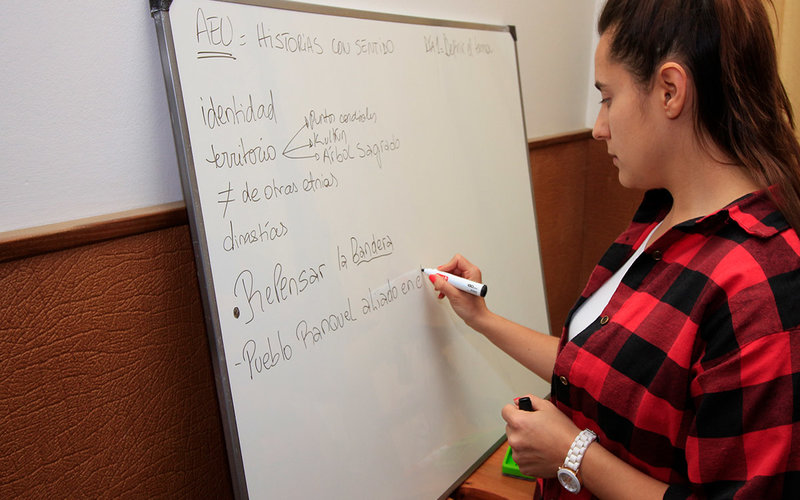 AEU = HISTORIAS CON SENTIDO
Día 1- Definir el tema
identidad
territorio
Punto cardinales
Kulkin
Árbol Sagrado
≠ de otras etnias
dinastías
• Repensar la Bandera
- Pueblo Ranquel aliado en e